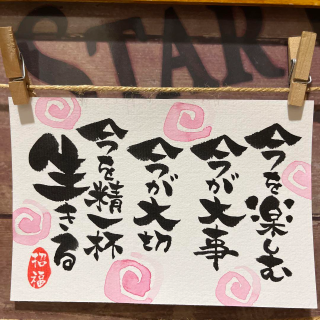 STAR
今を楽しむ
今が大事
今が大切
今を精一杯
生きる
招福